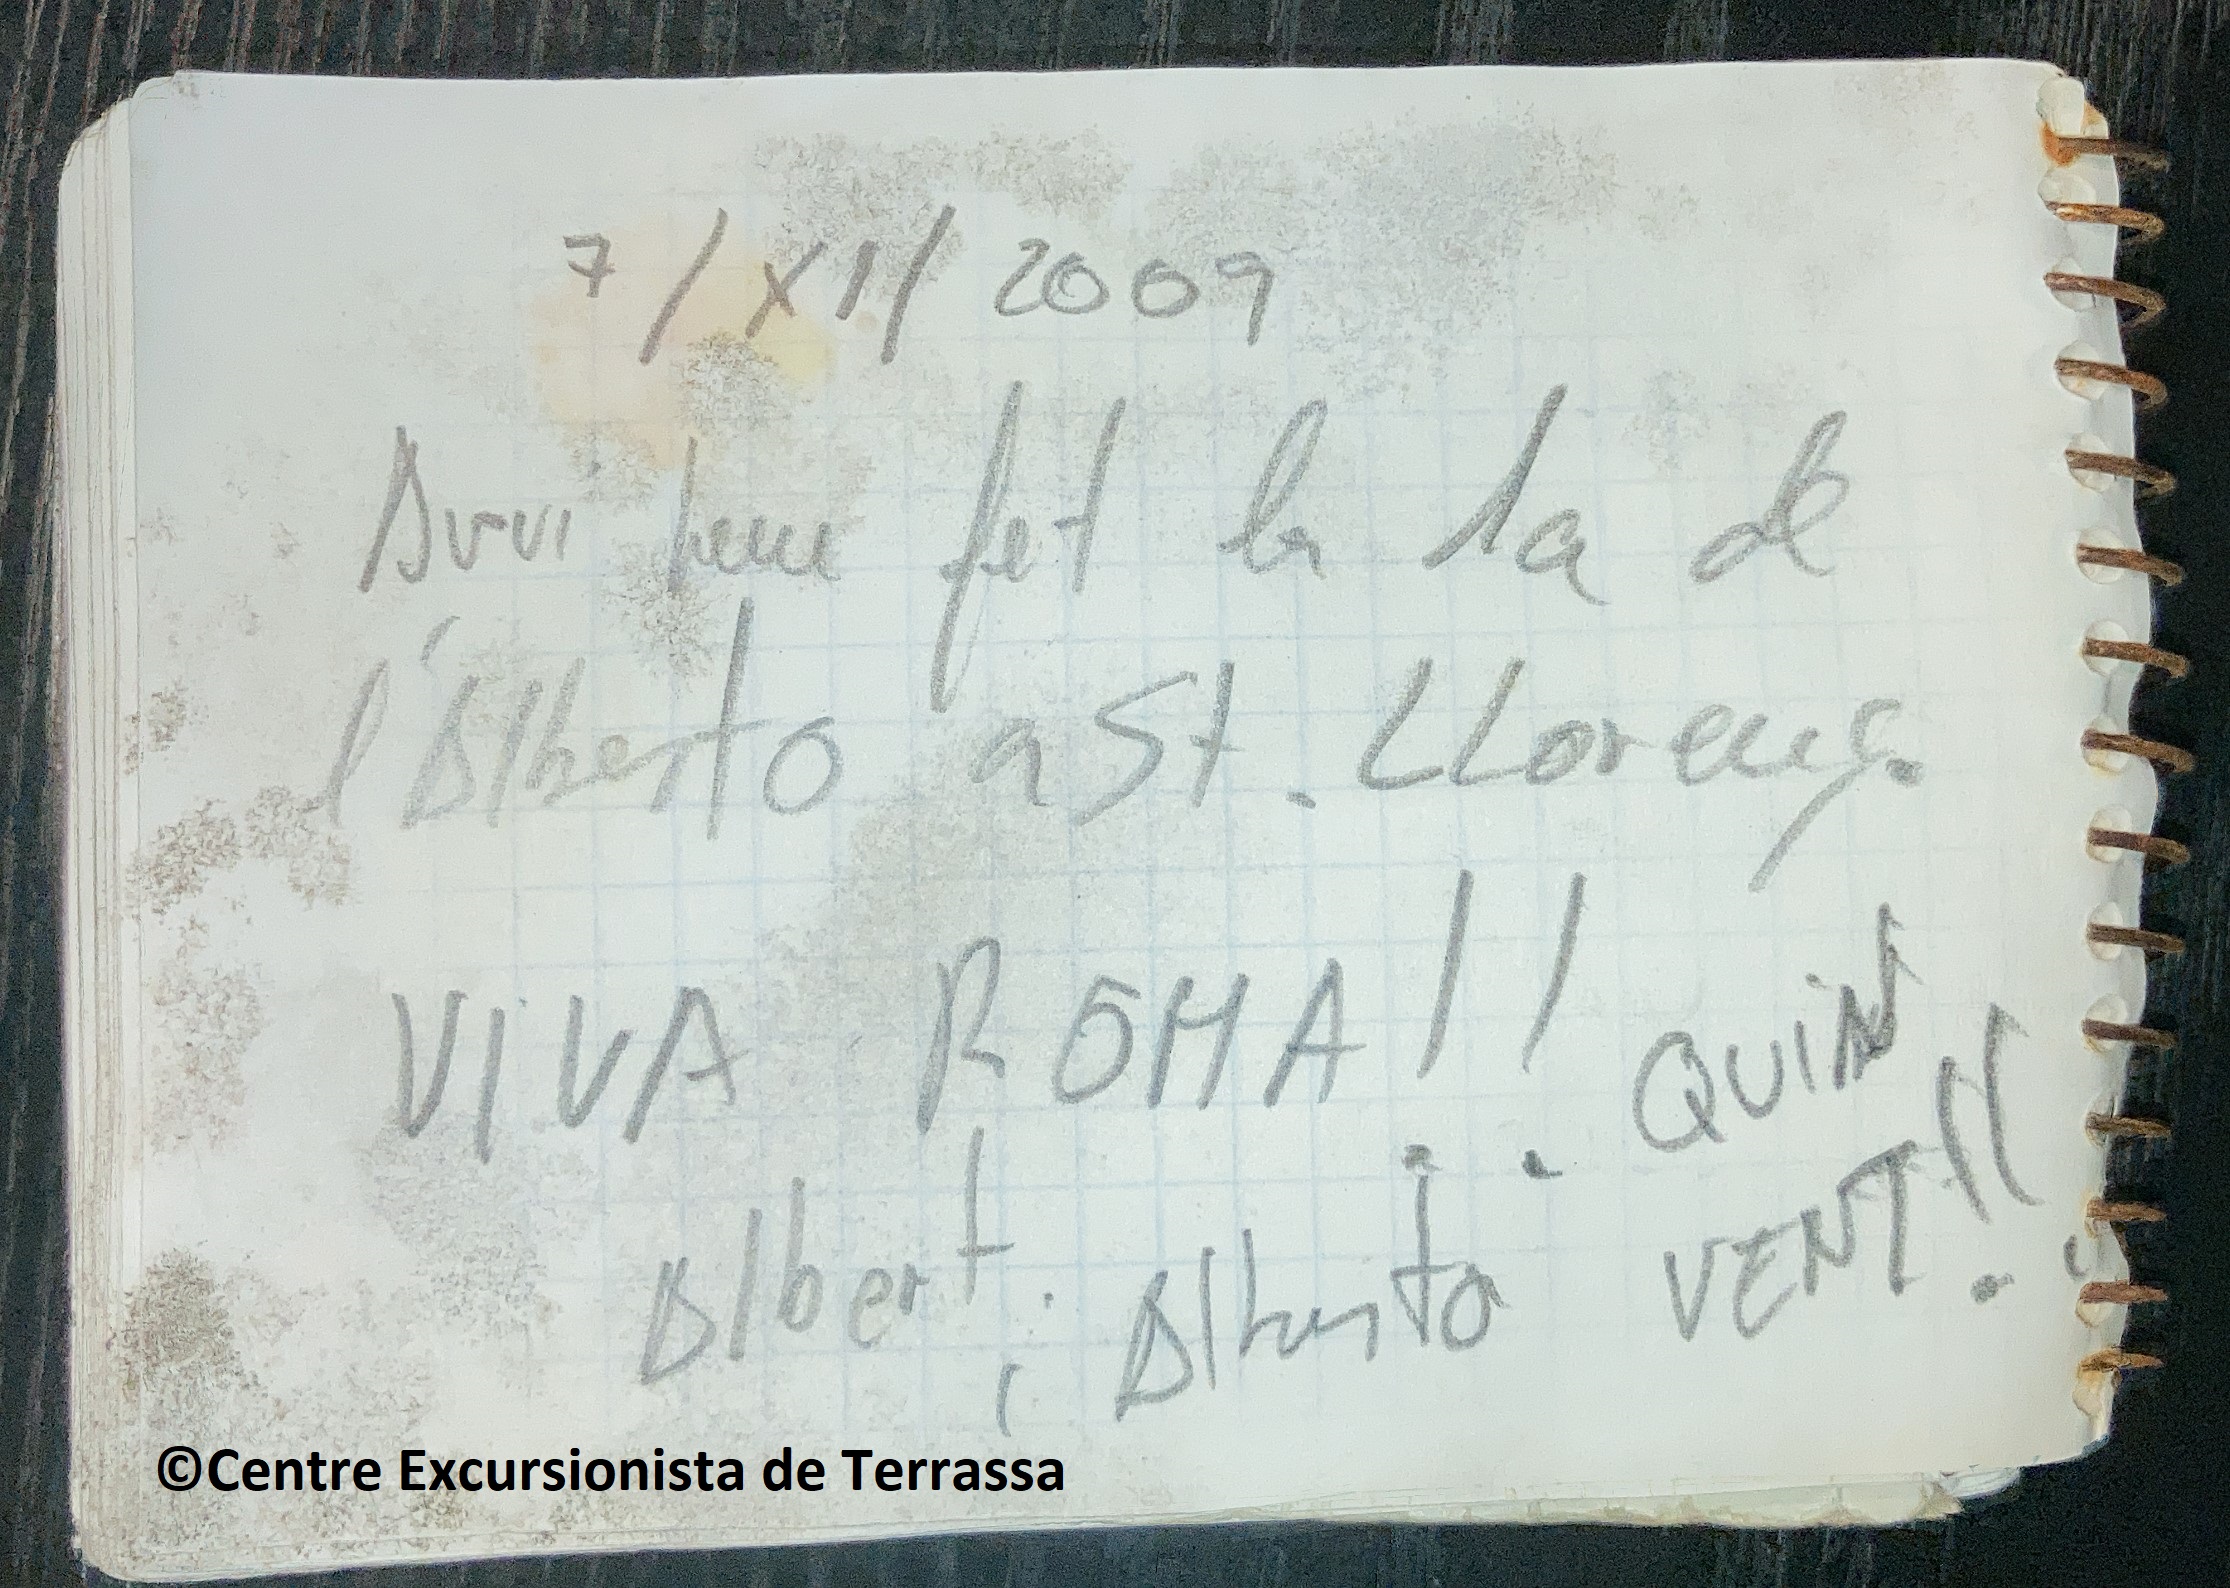 7/XI/2009
Avui hem fet la 1a de
l'Alberto a St. Llorenç.
VIVA ROMA!!
QUIN
VENT!!
Albert i Alberto
©Centre Excursionista de Terrassa